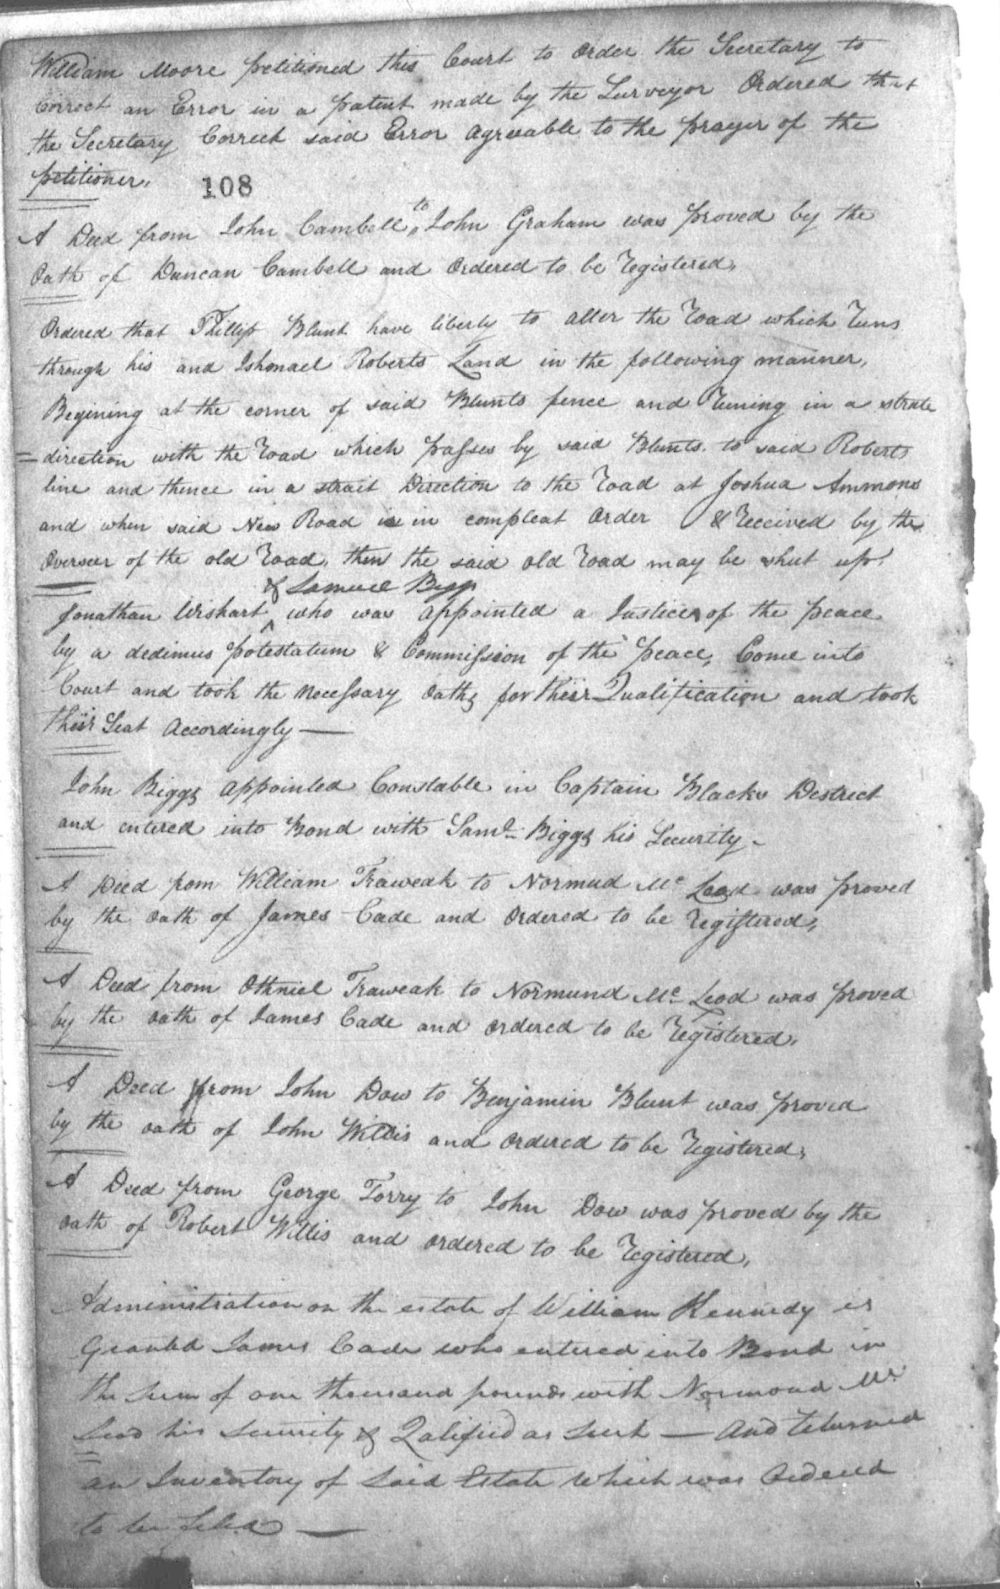 William Moore petitioned this Court to Order the Secretary to
Correct an Error in a patent made by the Surveyor Ordered that
the Secretary Correct said Error agreeable to the prayer of the
petitioner.
108
A Deed from John Cambell to John Graham was proved by the
Oath of Duncan Cambell and Ordered to be Registered,
Ordered that Phillip Blunt have liberty to alter the Road which Runs
through his and Ishmael Roberts Land in the following manner,
Begining at the corner of said Blunts fence and Runing in a strate
direction with the Road which passes by said Blunts to said Roberts
line and thence in a strait Direction to the Road at Joshua Ammons
and when said New Road is in compleat Order & Received by the
Overseer of the old Road, then the said old Road may be shut up
& Samuel Biggs
Jonathan Wishart ^ who was appointed a Justices of the peace
by a dedimus potestatum & Commission of the peace, Come into
Court and took the necessary Oaths for their Qualification and took
their Seat Accordingly —
John Biggs appointed Constable in Captain Blacks Destrect
and entered into Bond with Saml Biggs his Security -
A Deed from William Traweak to Normud Mc Leod was proved
by the oath of James Cade and Ordered to be Registered,
A Deed from Othniel Traweak to Normund Mc Leod was proved
by the oath of James Cade and ordered to be Registered,
A Deed from John Dow to Benjamin Blunt was proved
by the oath of John Willis and Ordered to be Registered,
A Deed from George Torry to John Dow was proved by the
oath of Robert Willis and ordered to be Registered,
Administration on the estate of William Kennedy is
Granted James Cade who entered into Bond in
the Sum of one thousand pounds with Normond Mc
Leod his Security & Qalified as Such — And Returned
an Inventory of Said Estate which was Ordered
to be filed —